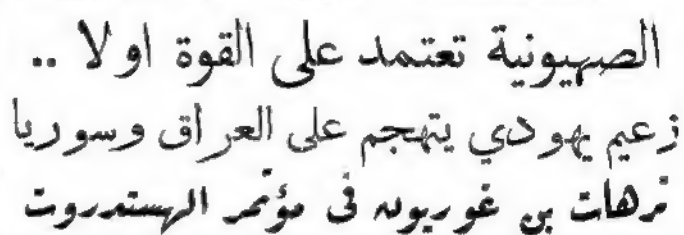 الصهيونية تعتمد على القوة اولا ..
زعيم يهودي يتهجم على العراق وسوريا
ترهات بن غوريون في مؤتمر الهستدروت